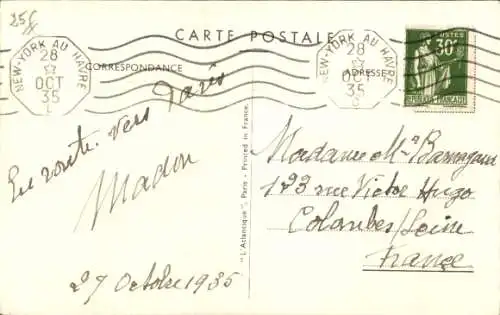 25f
CARTE POSTALE
CORRESPONDANCE
ADRESSE
NEW-YORK AU HAVRE
28
OCT
35
NEW-YORK AU HAVRE
28
OCT
35
POSTES
30c
RÉPUBLIQUE FRANÇAISE
En route vers Paris
Madon
27 Octobre 1935
"L'Atlantique", Paris - Printed in France.
Madame
123 rue Victor Hugo
Colombes/Seine
France